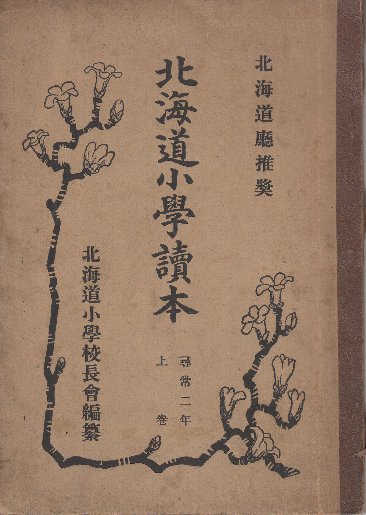 北海道廳推奬
北海道小學讀本
尋常二年
上卷
北海道小學校長會編纂